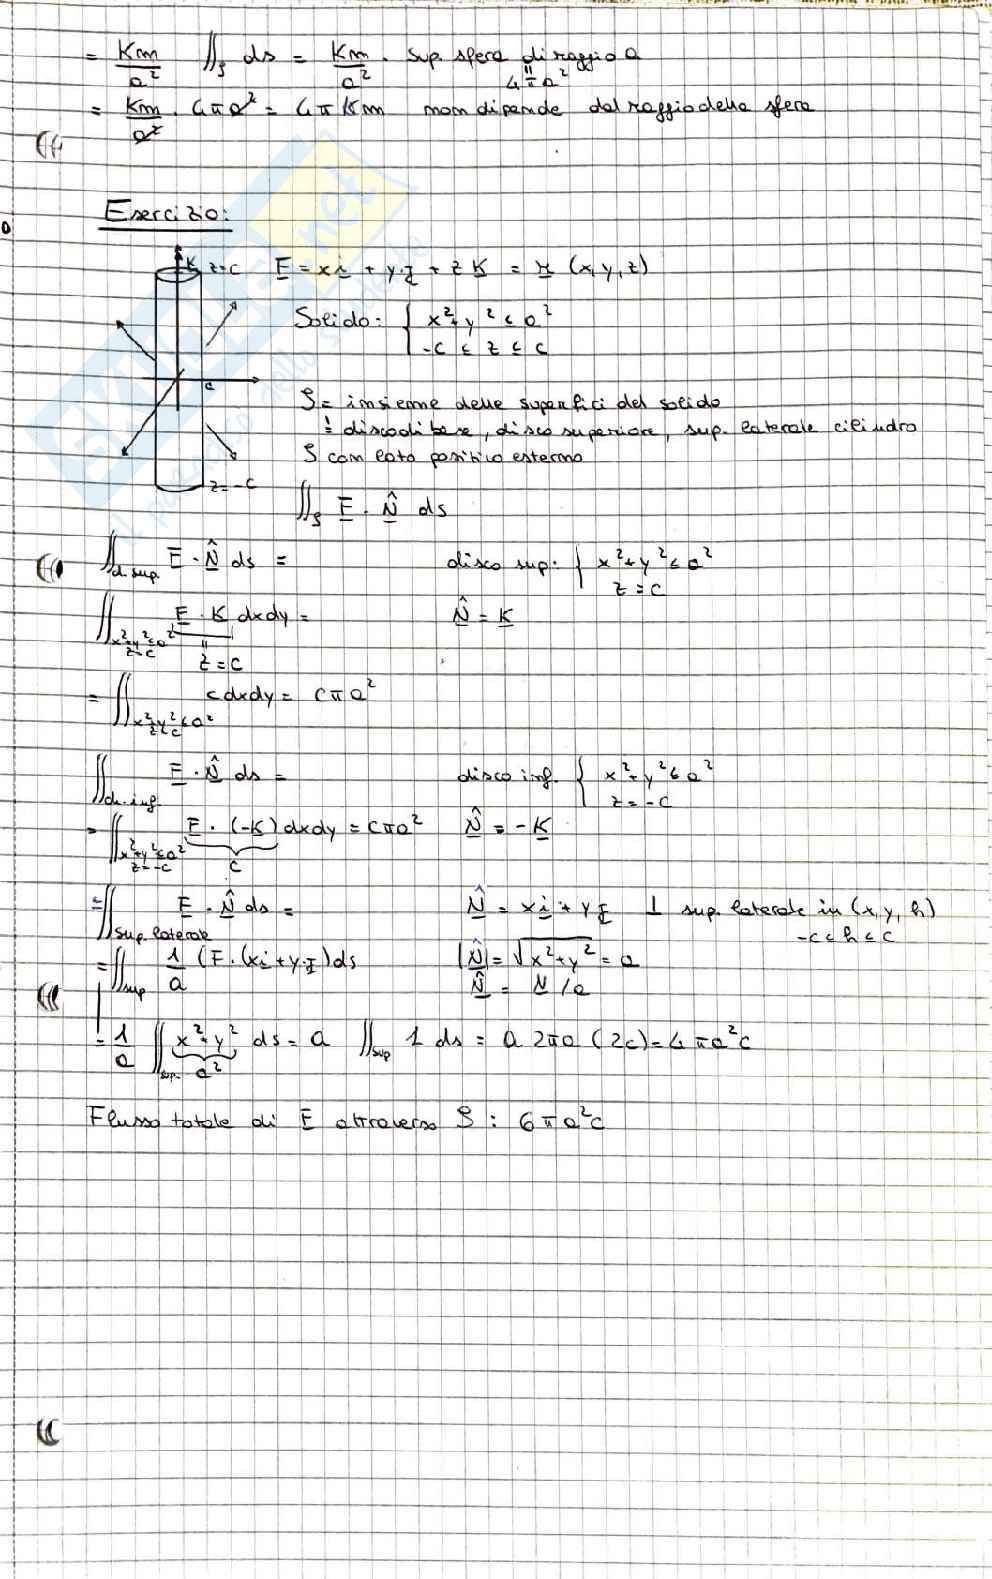 = Km/a² ∬_S ds = Km/a² · Sup. sfera di raggio a
4πa²
= Km/a² · 4πa² = 4πKm non dipende dal raggio della sfera
Esercizio:
K z=c F = xi + yj + zK = r (x,y,z)
Solido: { x²+y² ≤ a²
-c ≤ z ≤ c
S = insieme delle superfici del solido
: disco di base, disco superiore, sup. laterale cilindro
S con lato positivo esterno
z=-c
∬_S F · N̂ ds
∬_d.sup. F · N̂ ds = disco sup: { x²+y² ≤ a²
z = c
∬_x²+y²≤a² z=c F · K dxdy = N̂ = K
z = c
= ∬_x²+y²≤a² z=c c dxdy = cπa²
∬_d.inf F · N̂ ds = disco inf. { x²+y² ≤ a²
z = -c
= ∬_x²+y²≤a² z=-c F · (-K) dxdy = cπa² N̂ = -K
c
= ∬_sup. laterale F · N̂ ds = N̂ = xi + yj ⊥ sup. laterale in (x,y,h)
-c ≤ h ≤ c
= ∬_sup 1/a (F · (xi + yj)) ds |N̂| = √x²+y² = a
N̂ = N/a
= 1/a ∬_sup. x²+y² ds = a ∬_sup 1 ds = a 2πa (2c) = 4πa²c
a²
Flusso totale di F attraverso S : 6πa²c
SKUOLA.net
il paradiso dello studente